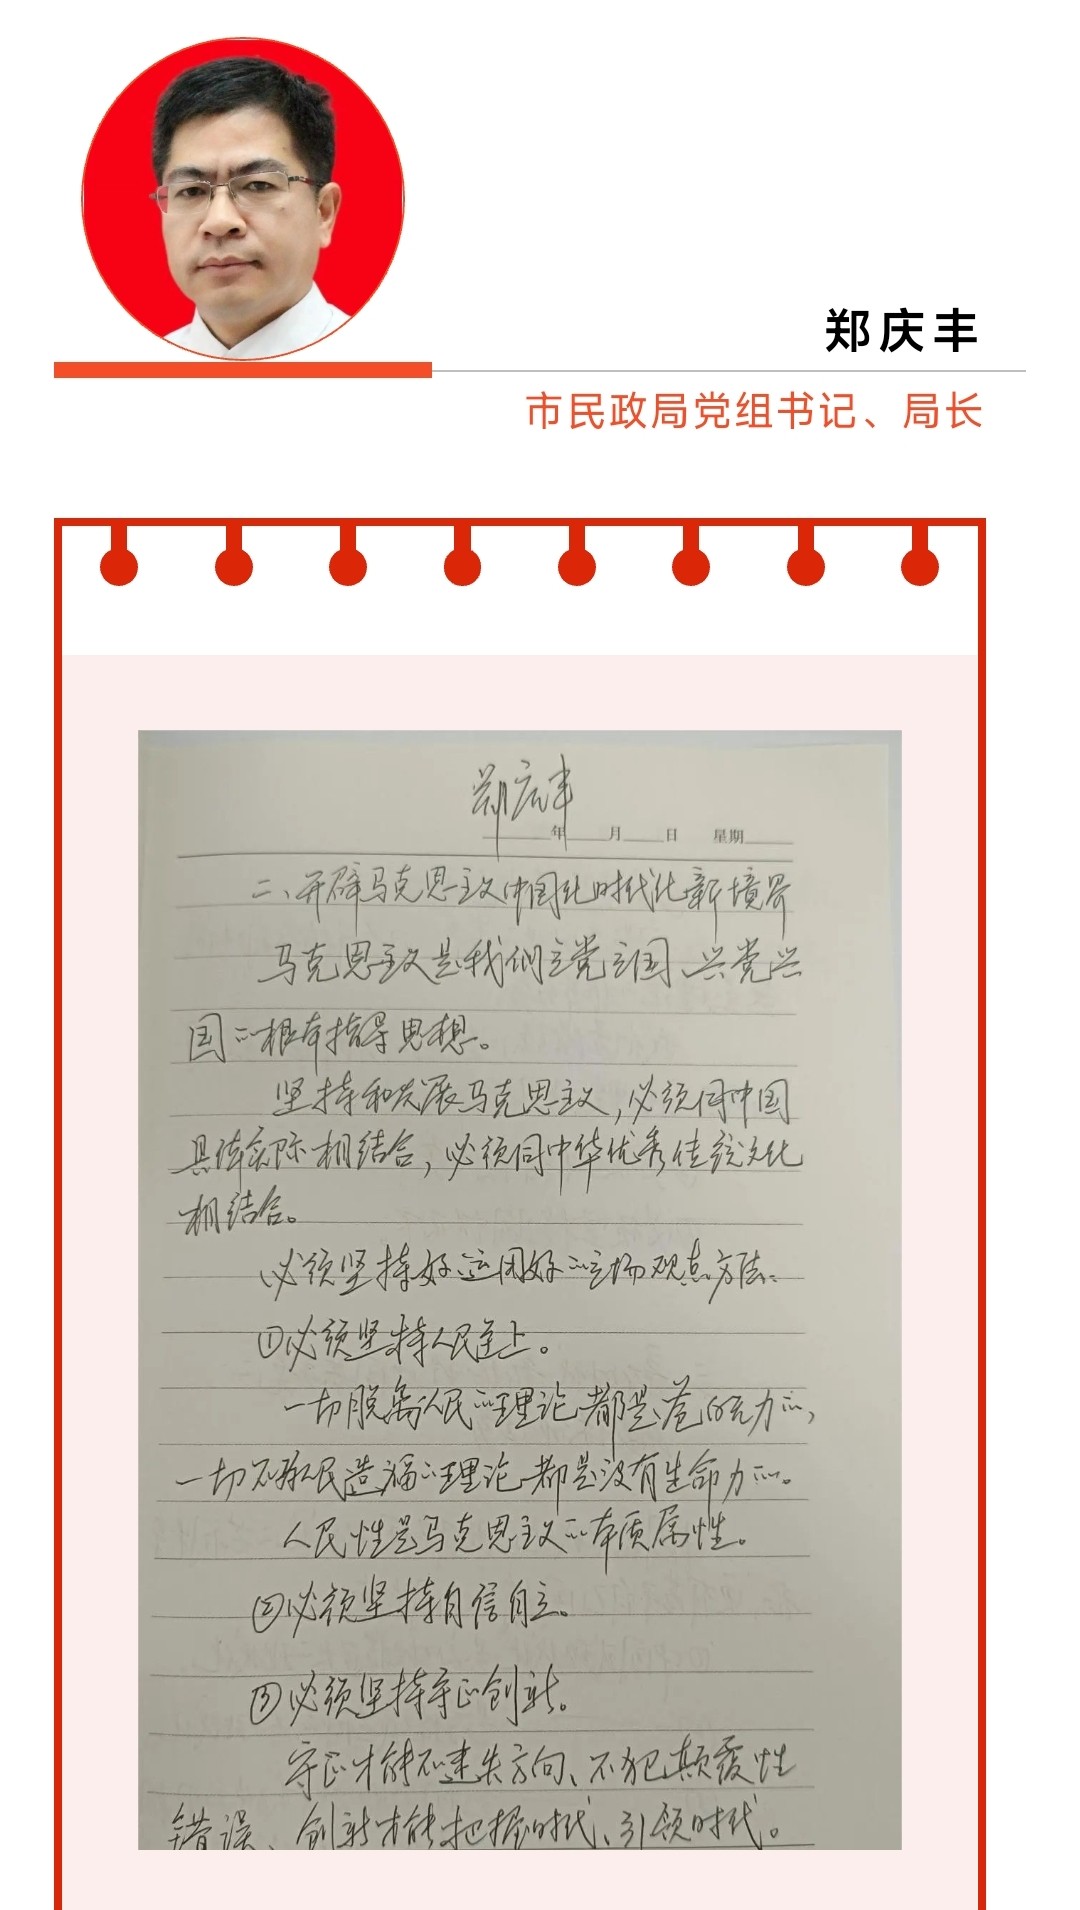 郑庆丰
市民政局党组书记、局长
郑庆丰
年 月 日 星期
二、开辟马克思主义中国化时代化新境界
马克思主义是我们立党立国、兴党兴
国的根本指导思想。
坚持和发展马克思主义,必须同中国
具体实际相结合,必须同中华优秀传统文化
相结合。
必须坚持好运用好的立场观点方法:
①必须坚持人民至上。
一切脱离人民的理论都是苍白无力的,
一切不为人民造福的理论都是没有生命力的。
人民性是马克思主义的本质属性。
②必须坚持自信自立。
③必须坚持守正创新。
守正才能不迷失方向、不犯颠覆性
错误、创新才能把握时代、引领时代。